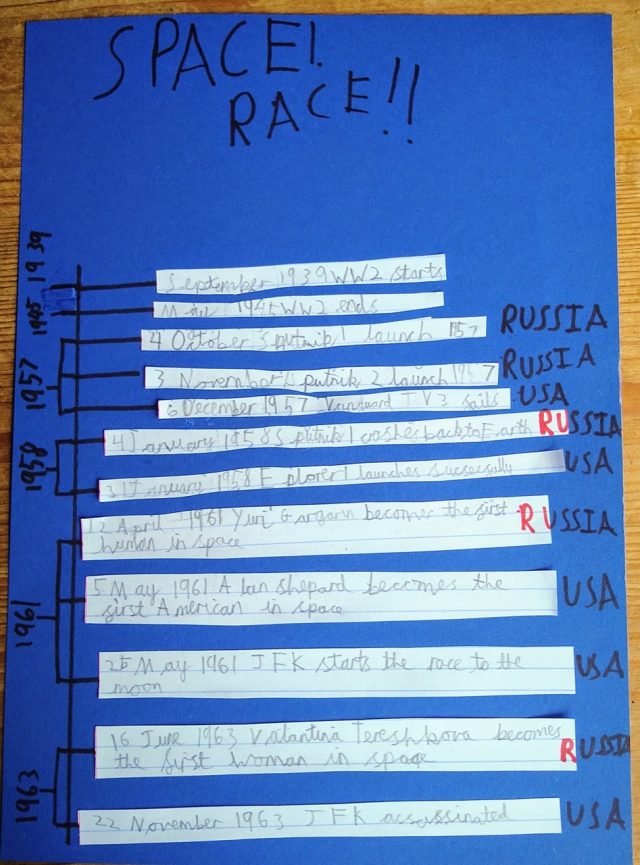 SPACE!
RACE!!
1939
September 1939 WW2 starts
1945
May 1945 WW2 ends
1957
4 October Sputnik 1 launch 1957 RUSSIA
3 November Sputnik 2 launch 1957 RUSSIA
6 December 1957 Vanguard TV3 fails USA
1958
4 January 1958 Sputnik 1 crashes back to Earth RUSSIA
31 January 1958 Explorer 1 launches sucsecfully USA
1961
12 April 1961 Yuri Gargarin becomes the first RUSSIA
human in space
5 May 1961 Alan Shepard becomes the USA
first American in space
25 May 1961 JFK starts the race to the USA
moon
1963
16 June 1963 Valantina Tereshkova becomes
the first woman in space RUSSIA
22 November 1963 JFK assassinated USA